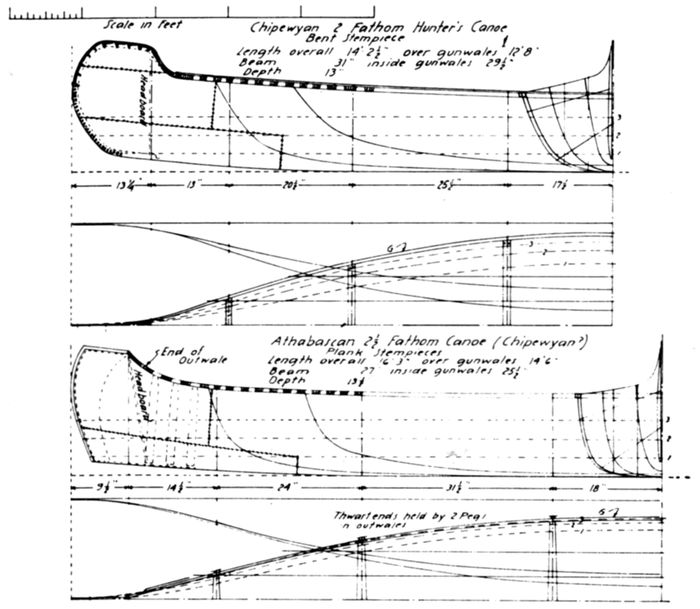 Scale in Feet
Chipewyan 2 Fathom Hunter's Canoe
Bent Stempiece
Length overall 14' 2½" over gunwales 12' 8"
Beam 31" inside gunwales 29½"
Depth 13"
Headboard
3
2
1
13¼" 13" 20½" 25½" 17½"
G
3
2
1
Athabascan 2½ Fathom Canoe (Chipewyan?)
Plank Stempieces
Length overall 16' 3" over gunwales 14' 6"
Beam 27" inside gunwales 25½"
Depth
End of
Outwale
Headboard
3
2
1
9½" 14½" 24" 31½" 18"
Thwart ends held by 2 Pegs
in outwales
G
3
1